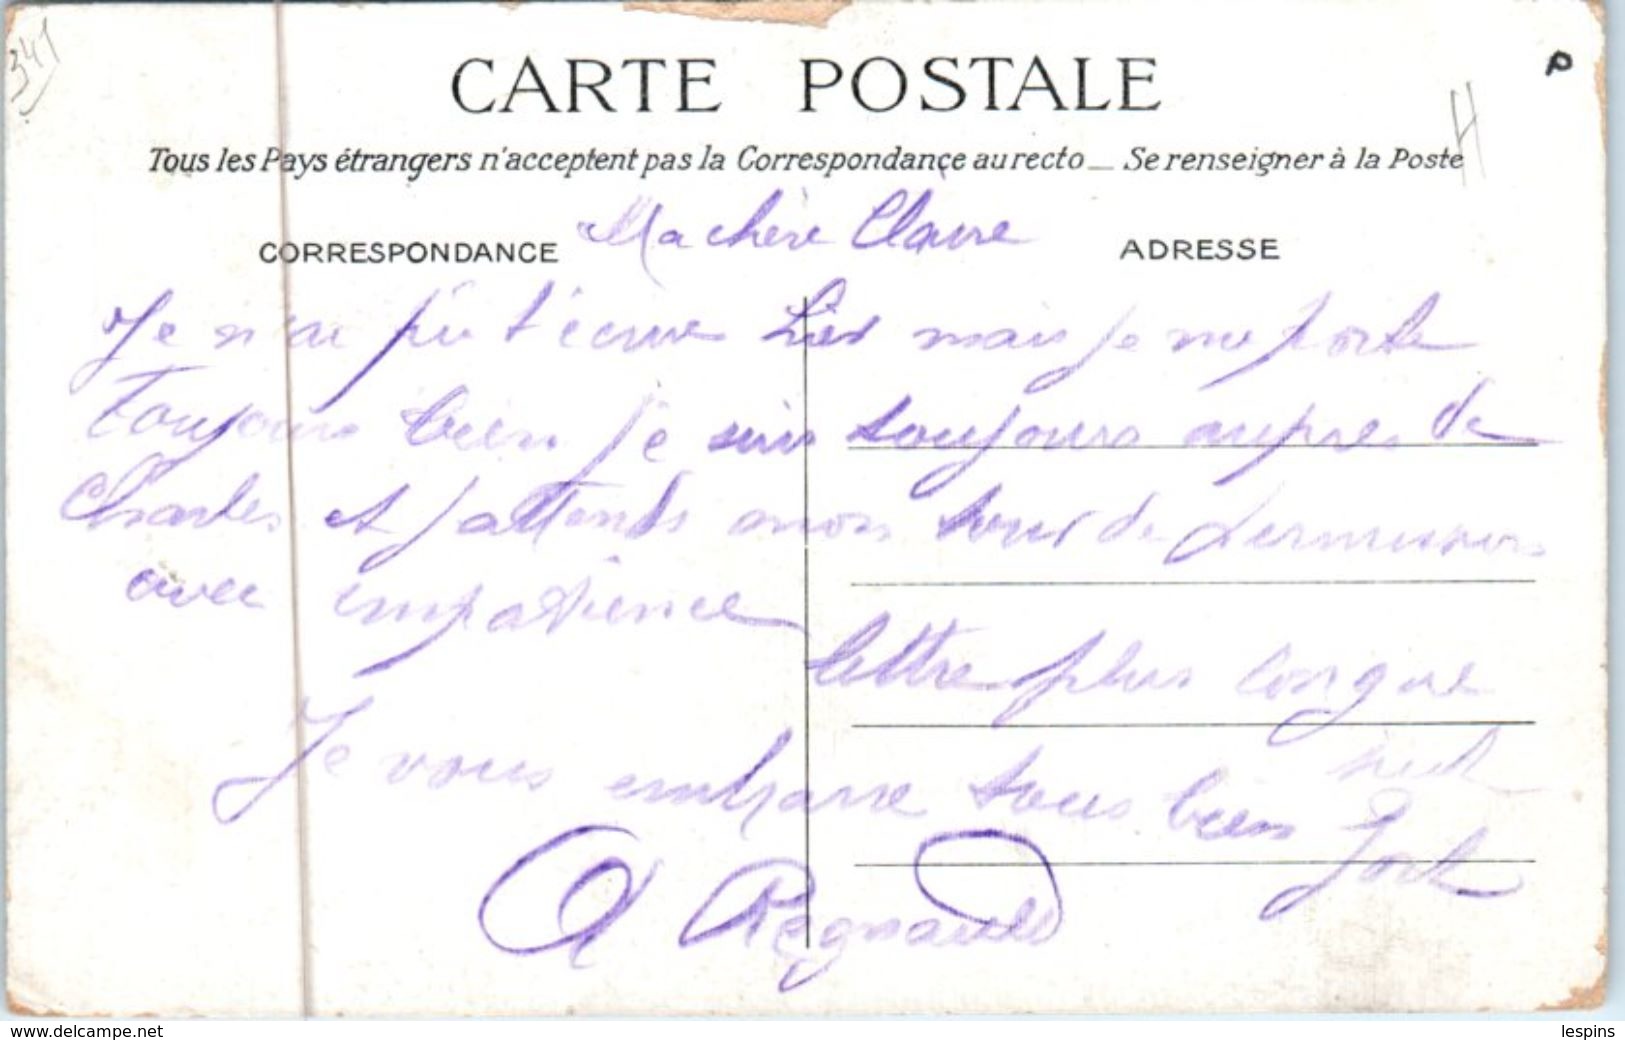 341
CARTE POSTALE
P
H
Tous les Pays étrangers n'acceptent pas la Correspondance au recto — Se renseigner à la Poste
CORRESPONDANCE
ADRESSE
Ma chère Claire
Je n'ai pu t'écrire hier mais je me porte
toujours bien je suis toujours aupres de
Charles et j'attends mon tour de permission
avec impatience
lettre plus longue
Je vous embrasse tous bien
fort
A Regnauld
www.delcampe.net
lespins